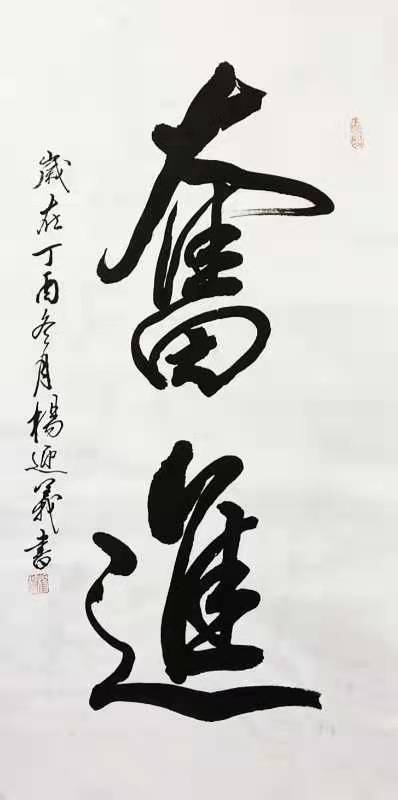 奮進
歲在丁酉冬月楊迎義書